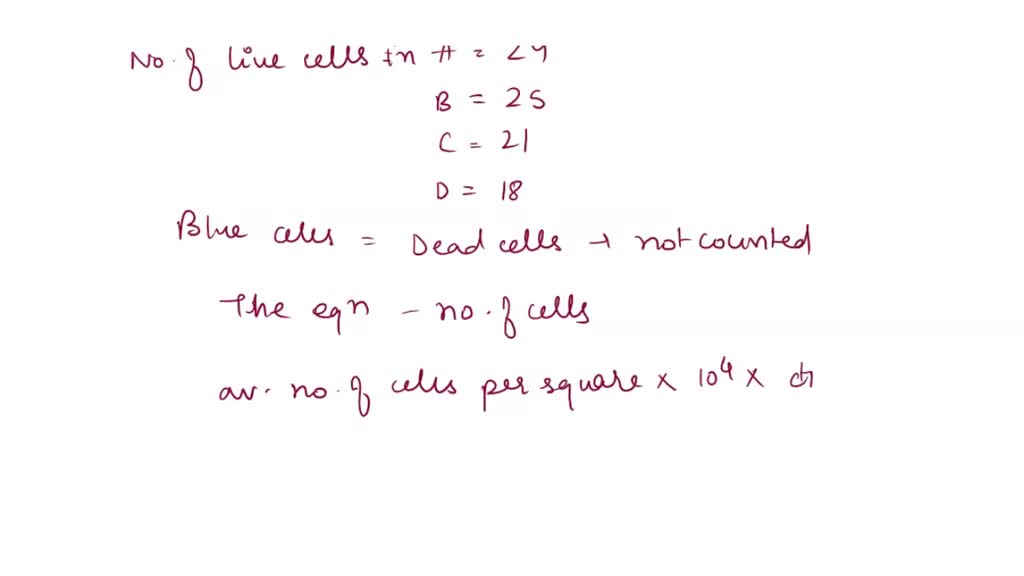 No. of live cells in A = 24
B = 25
C = 21
D = 18
Blue cells = Dead cells → not counted
The eqn – no. of cells
av. no. of cells per square x 10⁴ x